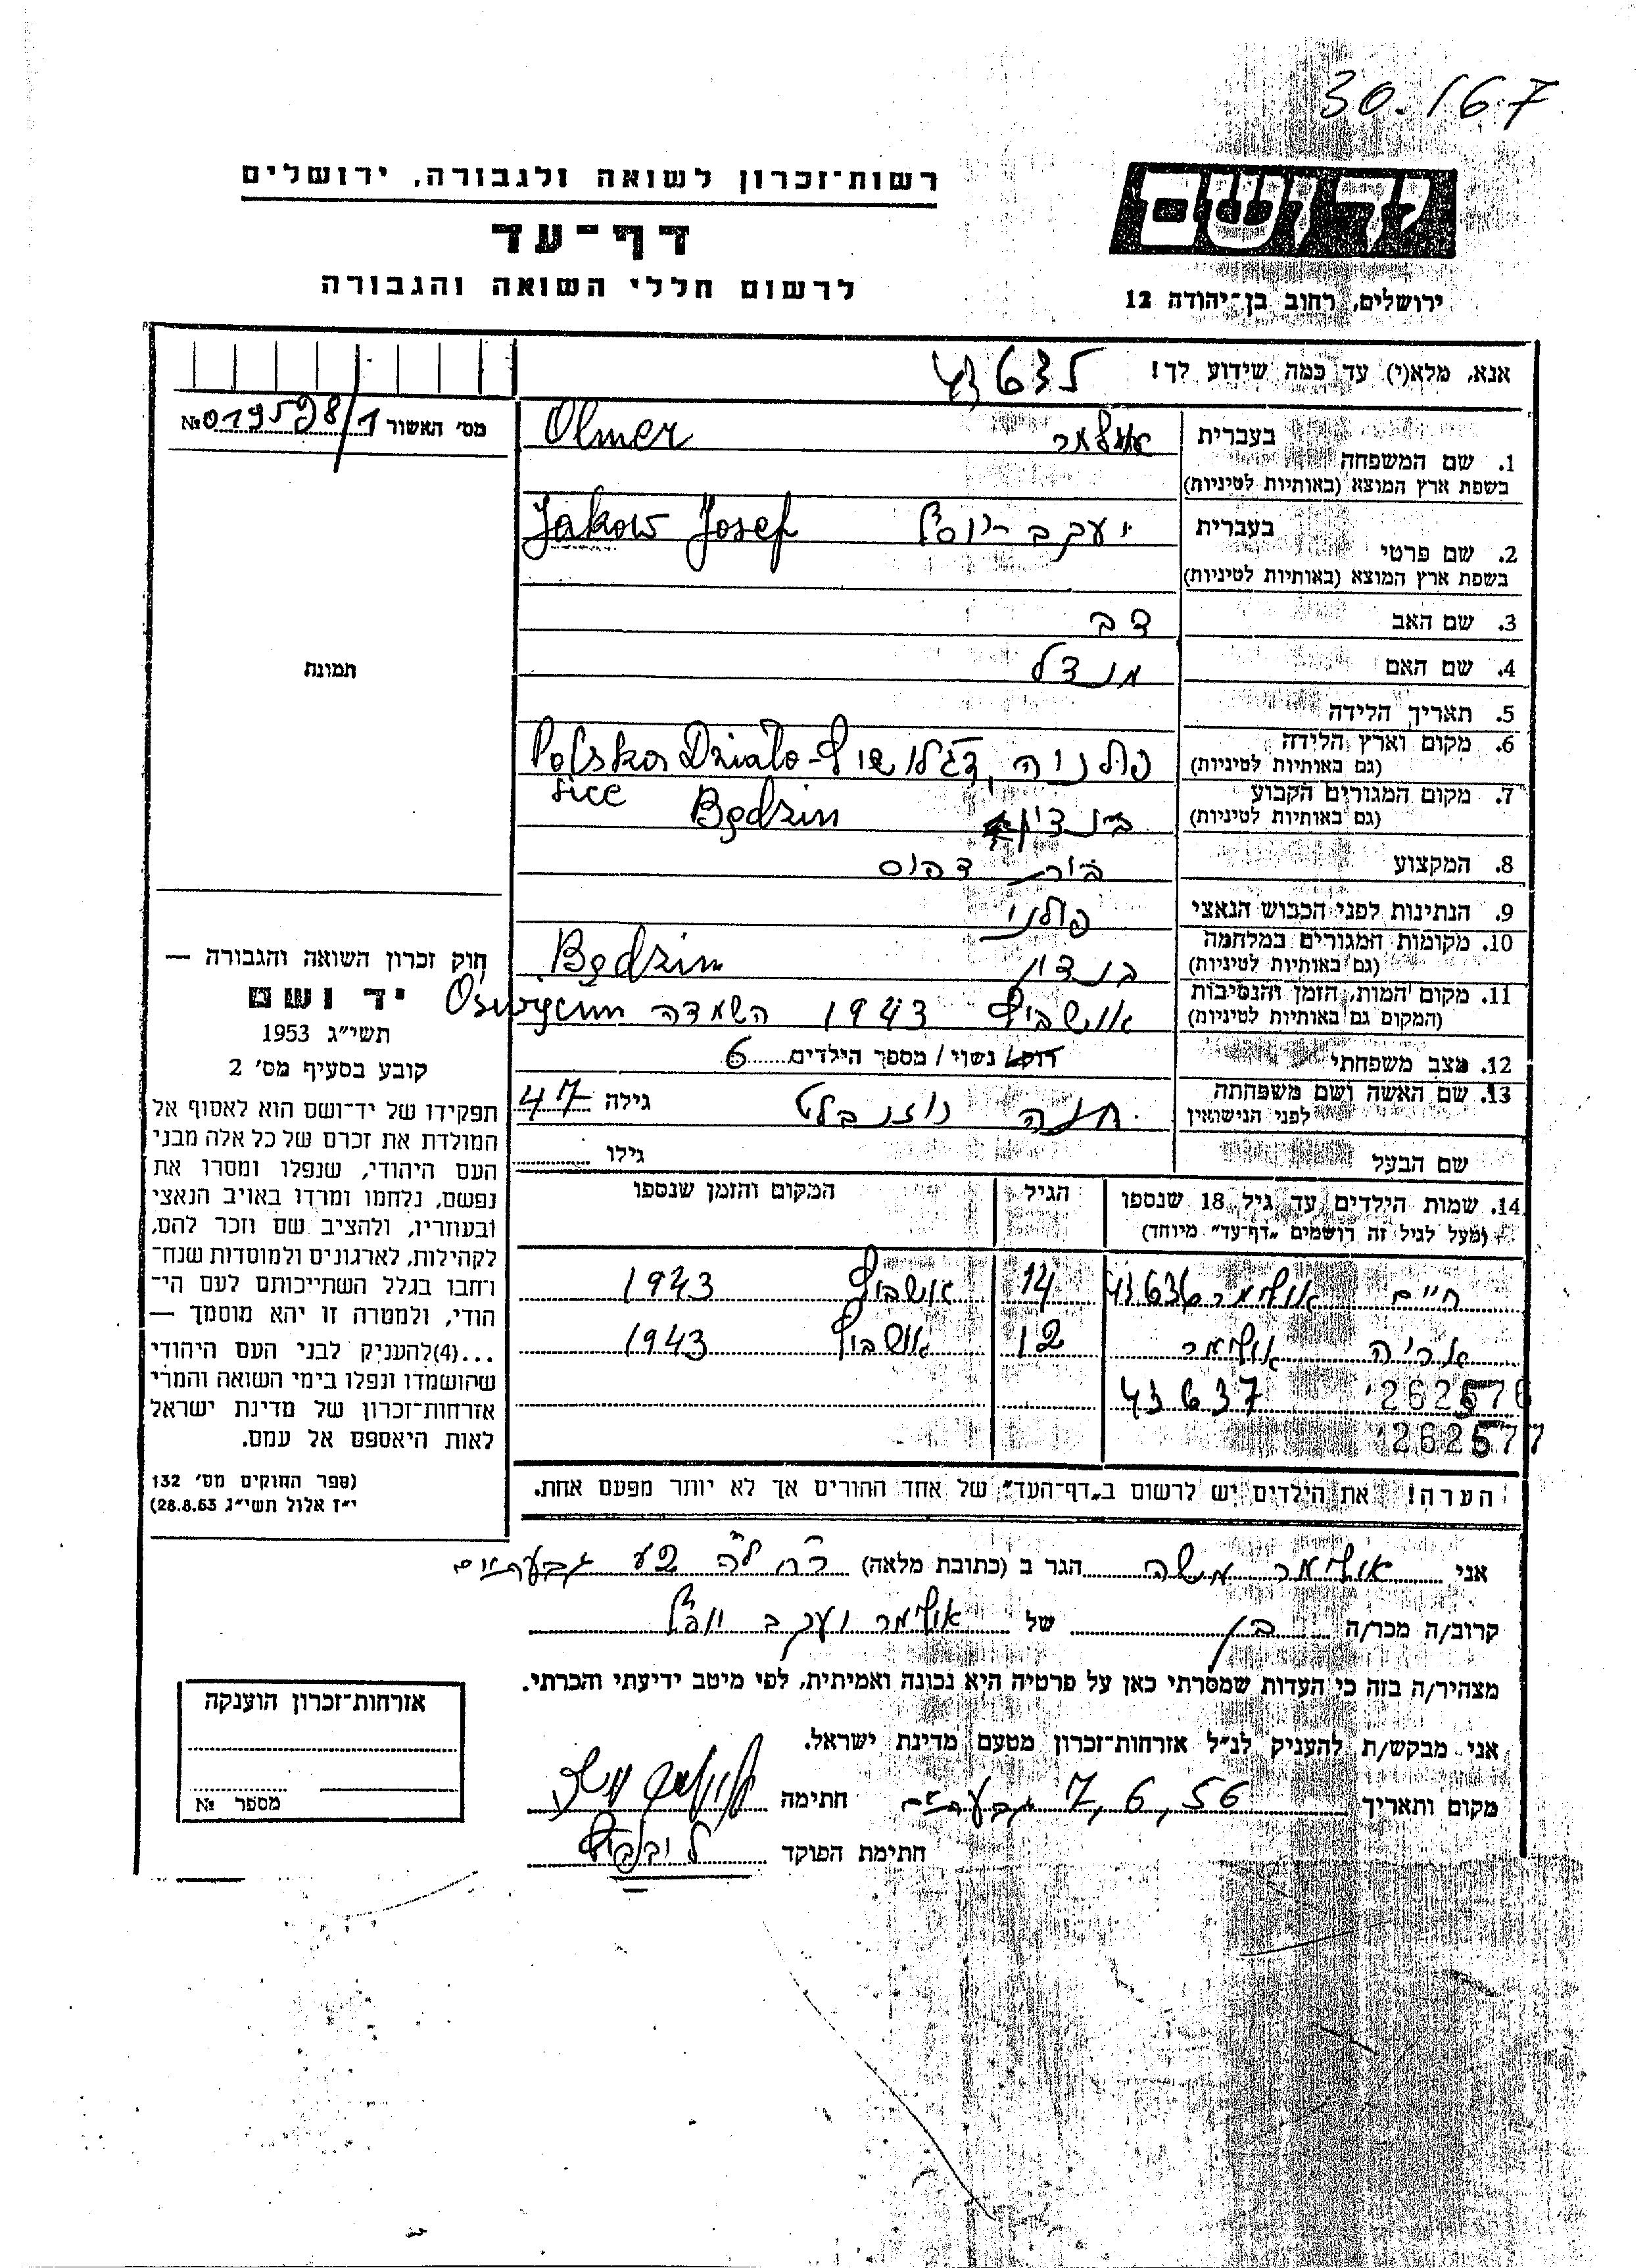 30.167
רשות־זכרון לשואה ולגבורה, ירושלים
דף־עד
לרשום חללי השואה והגבורה
ידושם
ירושלים, רחוב בן־יהודה 12
אנא, מלא(י) עד כמה שידוע לך! 43635
מס׳ האשור 019598/1 №
1. שם המשפחה בעברית אולמר Olmer
בשפת ארץ המוצא (באותיות לטיניות)
2. שם פרטי בעברית יעקב יוסף Jakow Josef
בשפת ארץ המוצא (באותיות לטיניות)
3. שם האב דב
4. שם האם מנדל
תמונה
5. תאריך הלידה
6. מקום וארץ הלידה פולניה, Polska Działo-
(גם באותיות לטיניות) szice
7. מקום המגורים הקבוע בנדין Będzin
(גם באותיות לטיניות)
8. המקצוע דפוס
9. הנתינות לפני הכבוש הנאצי פולני
10. מקומות המגורים במלחמה בנדין Będzin
(גם באותיות לטיניות)
11. מקום המות, הזמן והנסיבות אושביץ 1943 השמדה
(המקום גם באותיות לטיניות)
12. מצב משפחתי רווק / נשוי / מספר הילדים 6
13. שם האשה ושם משפחתה לפני הנישואין חנה גילה 47
שם הבעל גילו
14. שמות הילדים עד גיל 18 שנספו הגיל המקום והזמן שנספו
(מעל לגיל זה רושמים „דף־עד״ מיוחד)
חיים אולמר 43636 14 אושביץ 1943
אריה אולמר 12 אושביץ 1943
43637 262576
262577
הערה! את הילדים יש לרשום ב„דף־העד״ של אחד ההורים אך לא יותר מפעם אחת.
חוק זכרון השואה והגבורה —
יד ושם
תשי״ג 1953
קובע בסעיף מס׳ 2
תפקידו של יד־ושם הוא לאסוף אל
המולדת את זכרם של כל אלה מבני
העם היהודי, שנפלו ומסרו את
נפשם, נלחמו ומרדו באויב הנאצי
ובעוזריו, ולהציב שם וזכר להם,
לקהילות, לארגונים ולמוסדות שנח־
רחבו בגלל השתייכותם לעם הי־
הודי, ולמטרה זו יהא מוסמך —
...(4)להעניק לבני העם היהודי
שהושמדו ונפלו בימי השואה והמרי
אזרחות־זכרון של מדינת ישראל
לאות היאספם אל עמם.
(ספר החוקים מס׳ 132
י״ז אלול תשי״ג 28.8.53)
אני אולמר משה הגר ב (כתובת מלאה) גבעתיים
קרוב/ה מכר/ה בן של אולמר יעקב יוסף
מצהיר/ה בזה כי העדות שמסרתי כאן על פרטיה היא נכונה ואמיתית, לפי מיטב ידיעתי והכרתי.
אני מבקש/ת להעניק לנ״ל אזרחות־זכרון מטעם מדינת ישראל.
מקום ותאריך 7,6,56 גבעתיים חתימה אולמר משה
חתימת הפוקד
אזרחות־זכרון הוענקה
מספר №